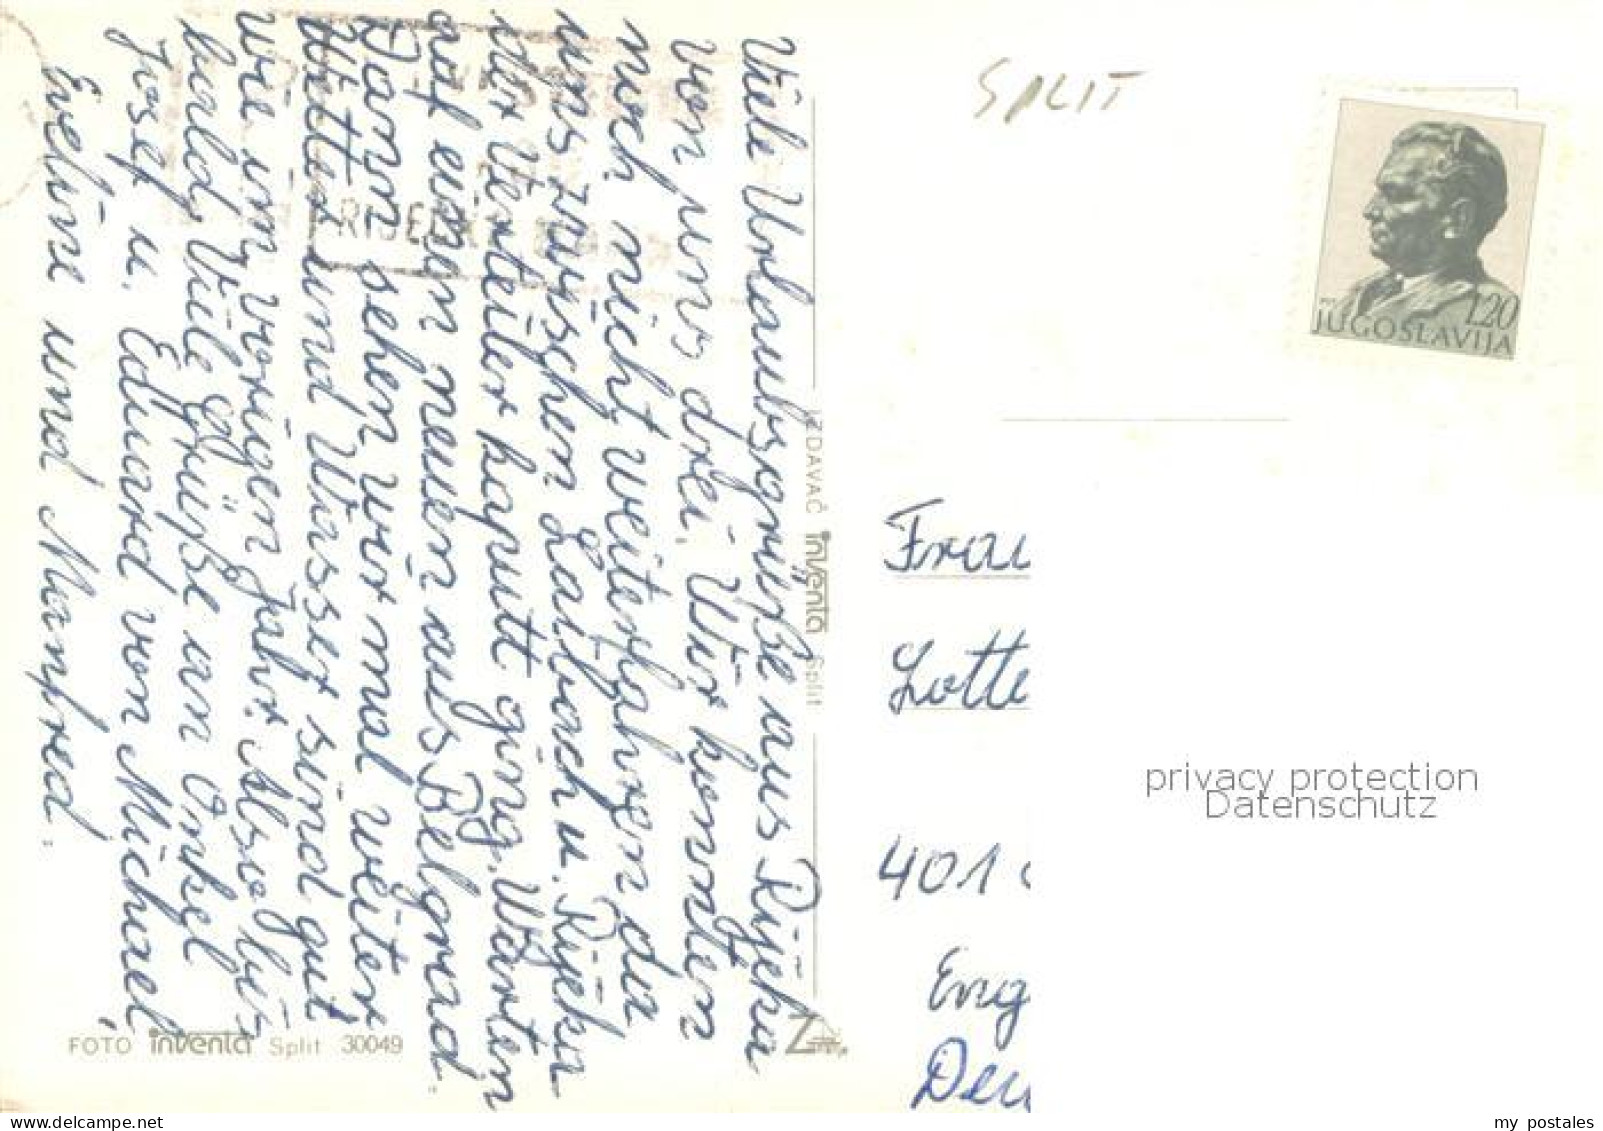 Viele Urlaubsgrüße aus Rijeka
von uns drei. Wir konnten
noch nicht weiterfahren da
uns zwischen Laibach u. Rijeka
der Verteiler kaputt ging. Warten
auf einen neuen aus Belgrad.
Dann sehen wir mal weiter
Wetter und Wasser sind gut
wie im vorigen Jahr. Also bis
bald, Viele Grüße an Onkel
Josef u. Eduard von Michael,
Eveline und Manfred.
RIJEKA
FOTO inventa Split 30049
IZDAVAČ inventa Split
SPLIT
1.20
JUGOSLAVIJA
Frau
Lotte
401
Eng
Deu
privacy protection
Datenschutz
my postales